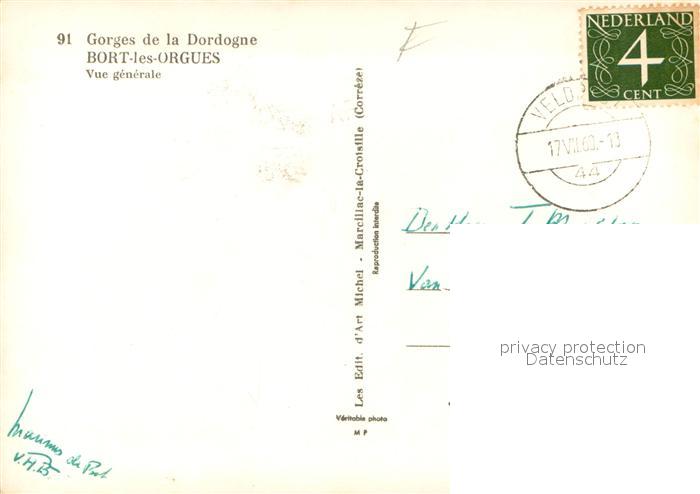 91 Gorges de la Dordogne
BORT-les-ORGUES
Vue générale
Les Edit. d'Art Michel - Marcillac-la-Croisille (Corrèze)
Reproduction interdite
Véritable photo
M P
NEDERLAND
4
CENT
VELD
17 VII.60.-13
44
Van
privacy protection
Datenschutz
V.H.B.